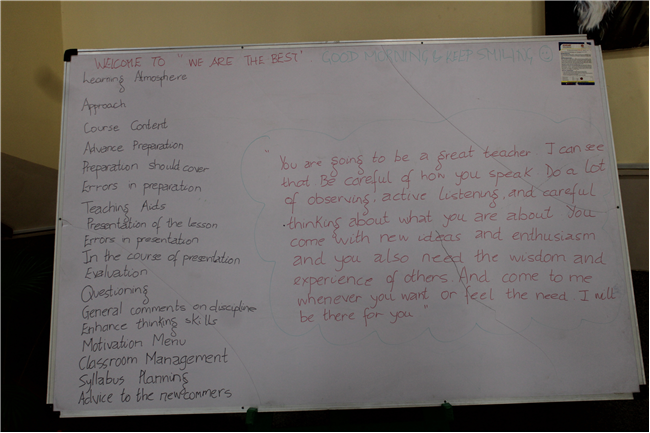 WELCOME TO "WE ARE THE BEST" GOOD MORNING & KEEP SMILING
Learning Atmosphere
Approach
Course Content
Advance Preparation
Preparation should cover
Errors in preparation
Teaching Aids
Presentation of the lesson
Errors in presentation
In the course of presentation
Evaluation
Questioning
General comments on discipline
Enhance thinking skills
Motivation Menu
Classroom Management
Syllabus Planning
Advice to the newcommers
"You are going to be a great teacher I can see
that Be careful of how you speak Do a lot
of observing, active listening, and careful
thinking about what you are about You
come with new ideas and enthusiasm
and you also need the wisdom and
experience of others. And come to me
whenever you want or feel the need I will
be there for you"